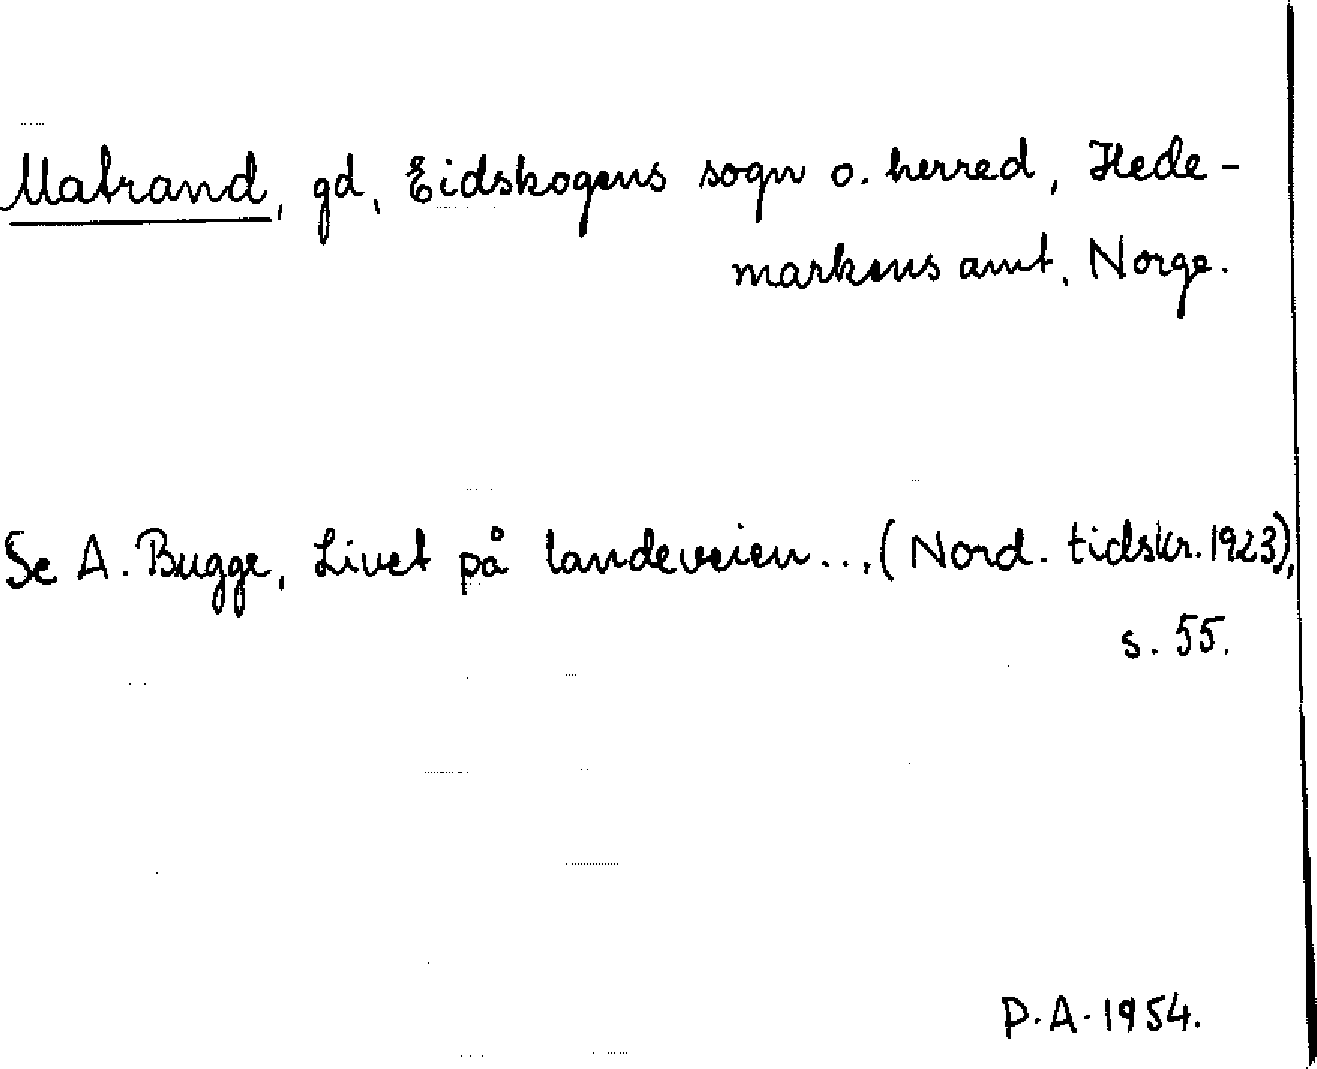 Matrand, gd, Eidskogens sogn o. herred, Hede-
markens amt, Norge.
Se A. Bugge, Livet på landeveien... (Nord. tidskr. 1923),
s. 55.
P.A. 1954.